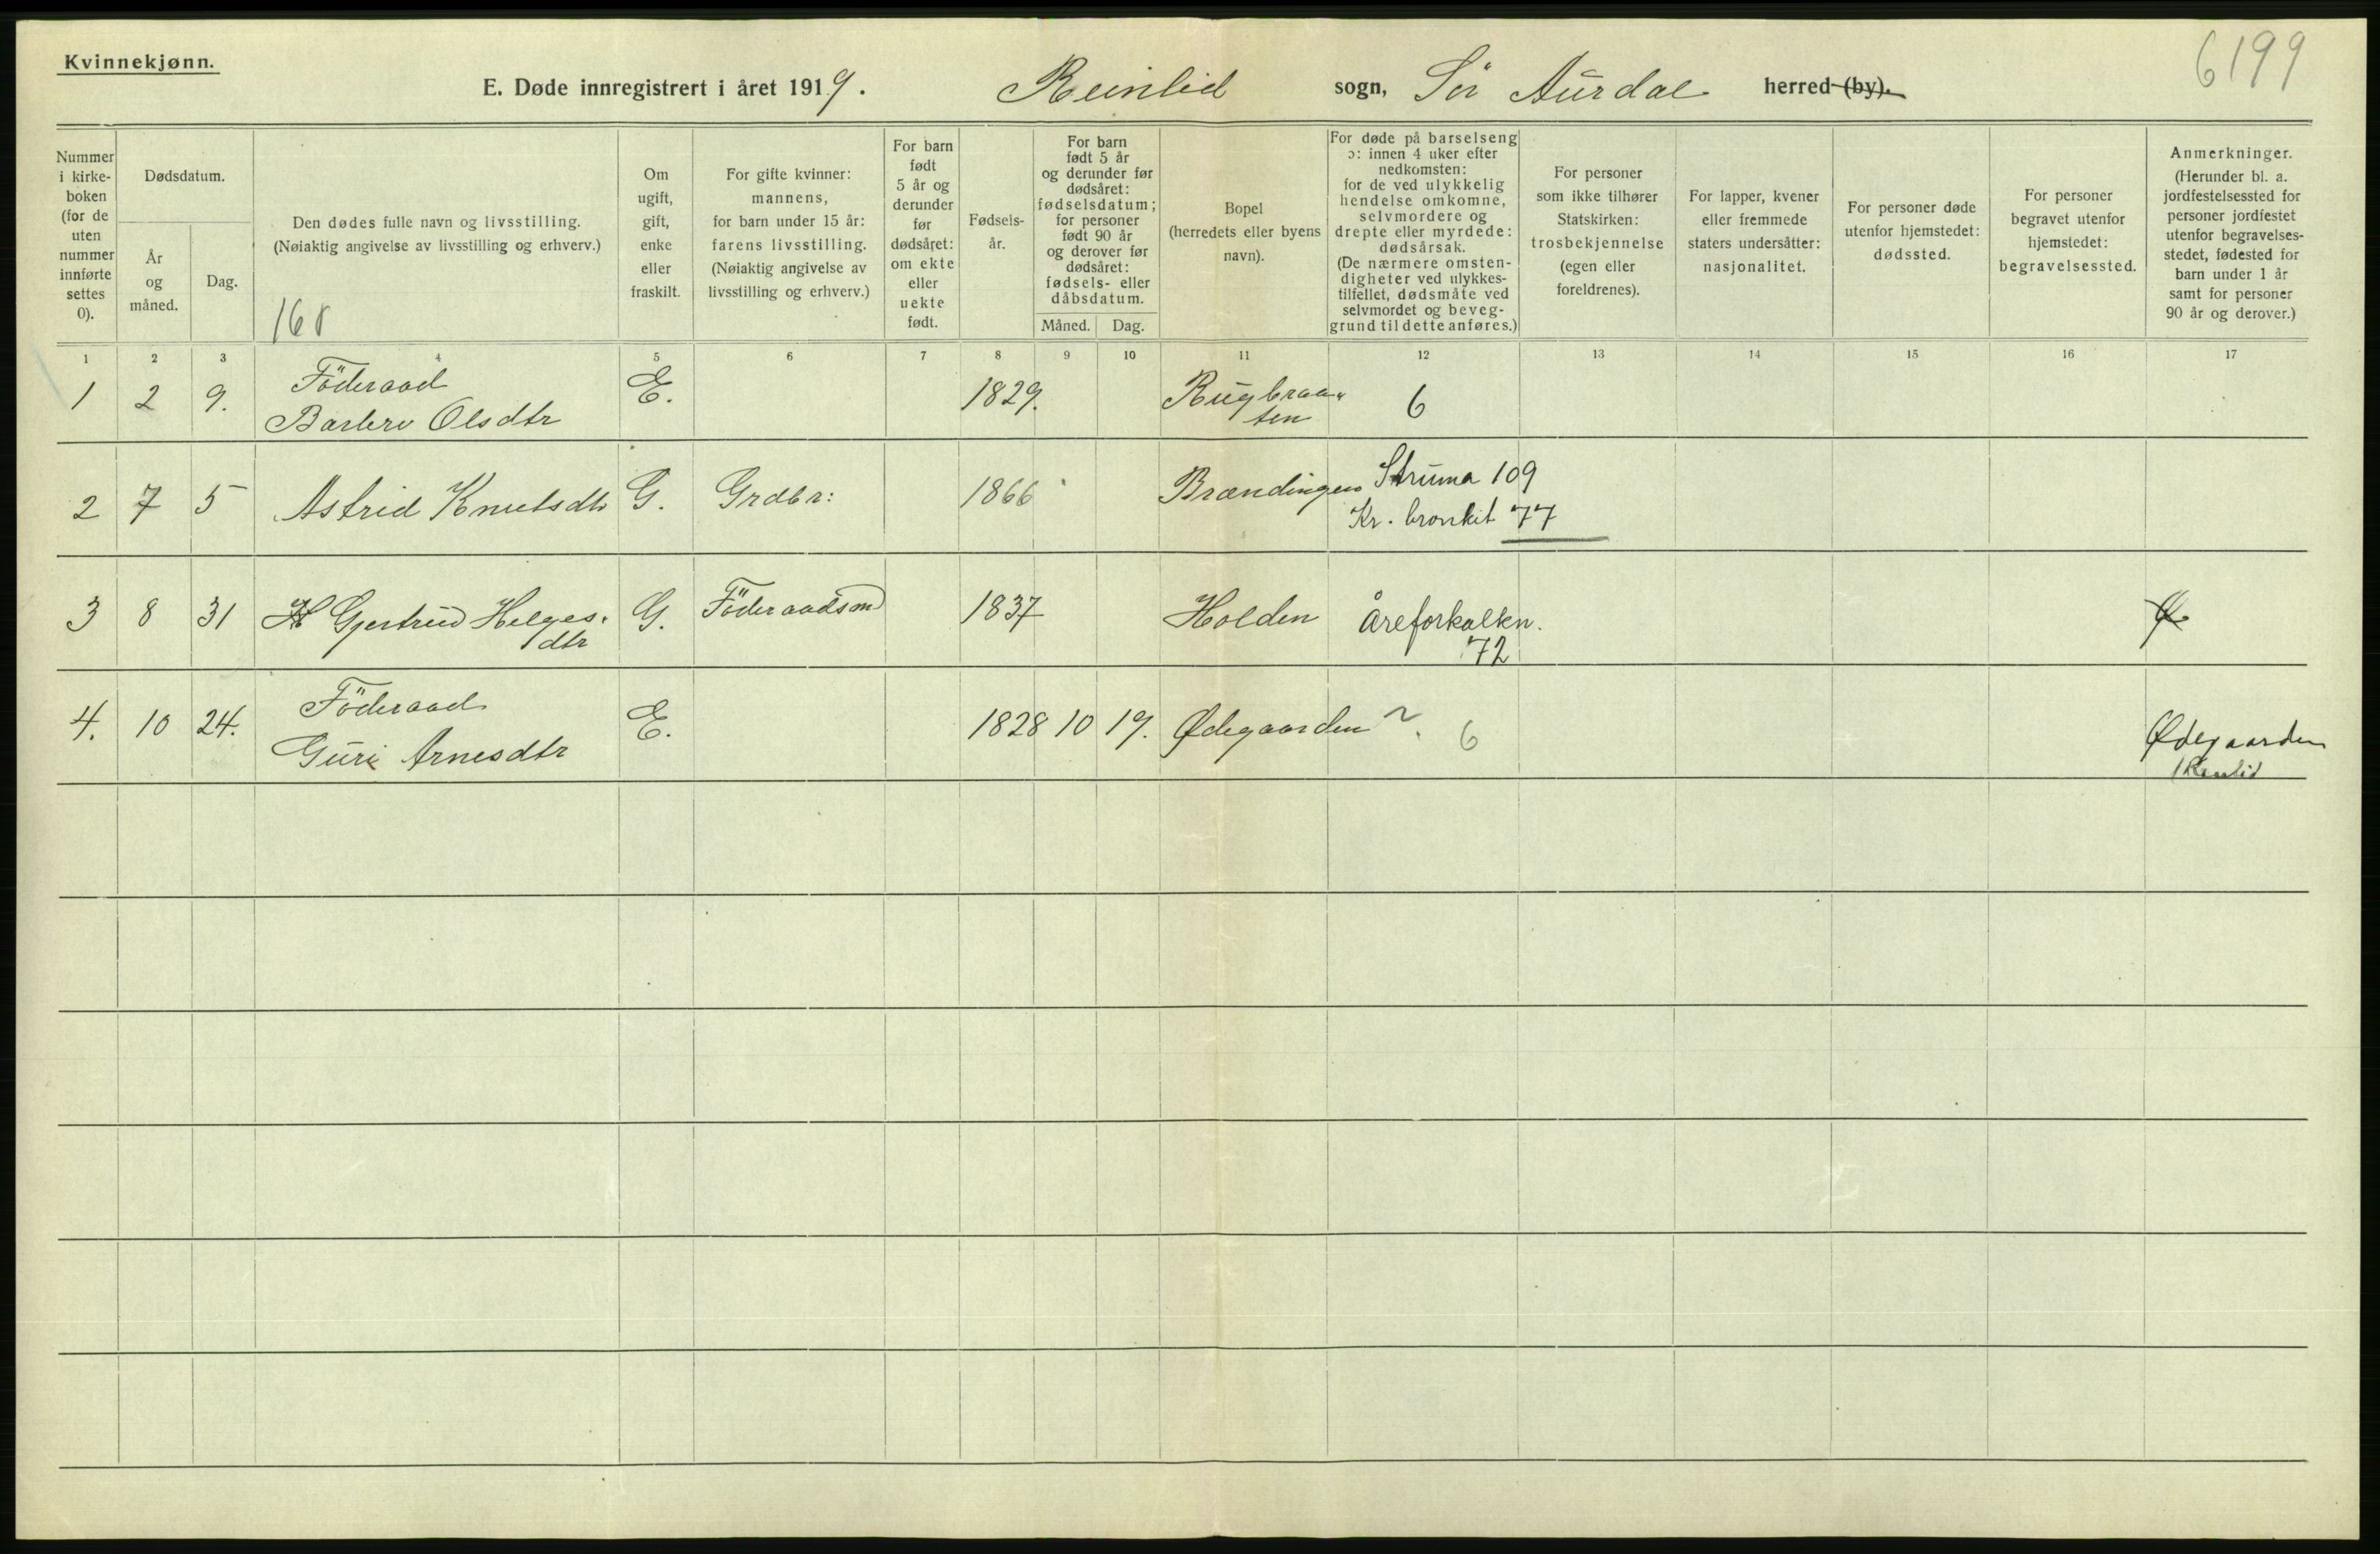 Kvinnekjønn.
6199
E. Døde innregistrert i året 1919. Reinlid sogn, Sör Aurdal herred (by).
Nummer i kirke-boken (for de uten nummer innførte settes 0).
Dødsdatum.
År og måned.
Dag.
Den dødes fulle navn og livsstilling.
(Nøiaktig angivelse av livsstilling og erhverv.)
168
Om ugift, gift, enke eller fraskilt.
For gifte kvinner: mannens, for barn under 15 år: farens livsstilling. (Nøiaktig angivelse av livsstilling og erhverv.)
For barn født 5 år og derunder før dødsåret: om ekte eller uekte født.
Fødsels-år.
For barn født 5 år og derunder før dødsåret: fødselsdatum; for personer født 90 år og derover før dødsåret: fødsels- eller dåbsdatum.
Måned. Dag.
Bopel (herredets eller byens navn).
For døde på barselseng ɔ: innen 4 uker efter nedkomsten: for de ved ulykkelig hendelse omkomne, selvmordere og drepte eller myrdede: dødsårsak. (De nærmere omsten-digheter ved ulykkes-tilfellet, dødsmåte ved selvmordet og beveg-grund til dette anføres.)
For personer som ikke tilhører Statskirken: trosbekjennelse (egen eller foreldrenes).
For lapper, kvener eller fremmede staters undersåtter: nasjonalitet.
For personer døde utenfor hjemstedet: dødssted.
For personer begravet utenfor hjemstedet: begravelsessted.
Anmerkninger. (Herunder bl. a. jordfestelsessted for personer jordfestet utenfor begravelses-stedet, fødested for barn under 1 år samt for personer 90 år og derover.)
1 2 3 4 5 6 7 8 9 10 11 12 13 14 15 16 17
1 2 9. Föderaad E. 1829. Rugbraa- 6
Barbro Olsdtr ten
2 7 5 Astrid Knutsdtr G. Grdbr: 1866 Brændingen Struma 109
Kr. bronkit 77
3 8 31 Gjertrud Helges- G. Föderaadsm 1837 Holden Åreforkalkn.
dtr 72
4. 10 24. Föderaad E. 1828 10 19. Ødegaarden 6 Ødegaarden
Guri Arnesdtr Reinlid